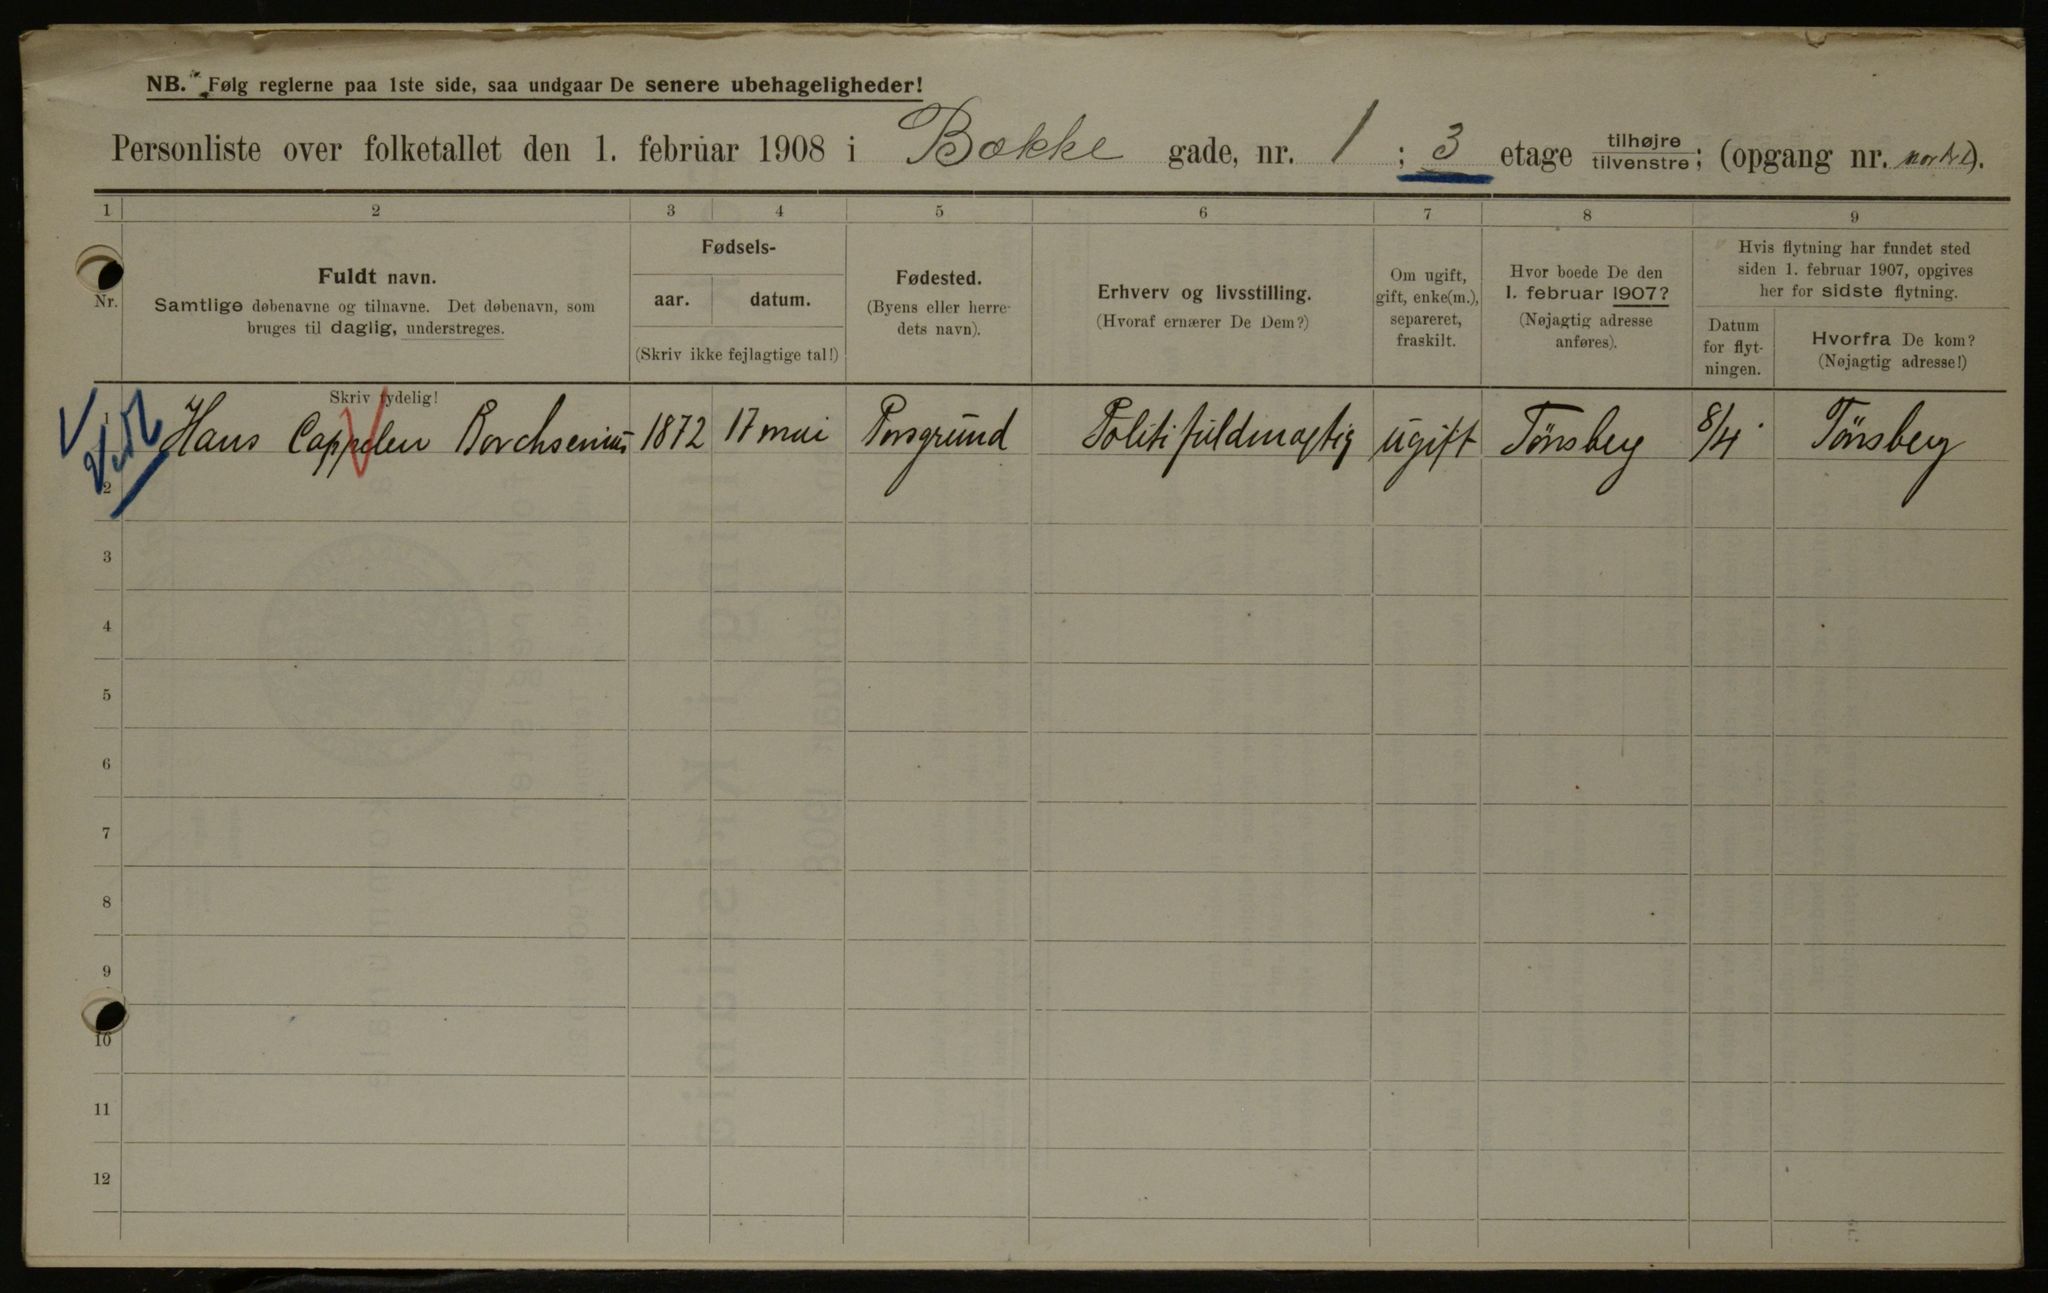 NB. Følg reglerne paa 1ste side, saa undgaar De senere ubehageligheder!
Personliste over folketallet den 1. februar 1908 i Bække gade, nr. 1 ; 3 etage tilhøjre tilvenstre; (opgang nr. ).
1 2 3 4 5 6 7 8 9
Nr.
Fuldt navn.
Samtlige døbenavne og tilnavne. Det døbenavn, som
bruges til daglig, understreges.
Skriv tydelig!
Fødsels-
aar. datum.
(Skriv ikke fejlagtige tal!)
Fødested.
(Byens eller herre-
dets navn).
Erhverv og livsstilling.
(Hvoraf ernærer De Dem?)
Om ugift,
gift, enke(m.),
separeret,
fraskilt.
Hvor boede De den
1. februar 1907?
(Nøjagtig adresse
anføres).
Hvis flytning har fundet sted
siden 1. februar 1907, opgives
her for sidste flytning.
Datum
for flyt-
ningen.
Hvorfra De kom?
(Nøjagtig adresse!)
1 Hans Cappelen Borchsenius 1872 17 mai Porsgrund Politifuldmægtig ugift Tönsberg 8/4 Tönsberg
2
3
4
5
6
7
8
9
10
11
12